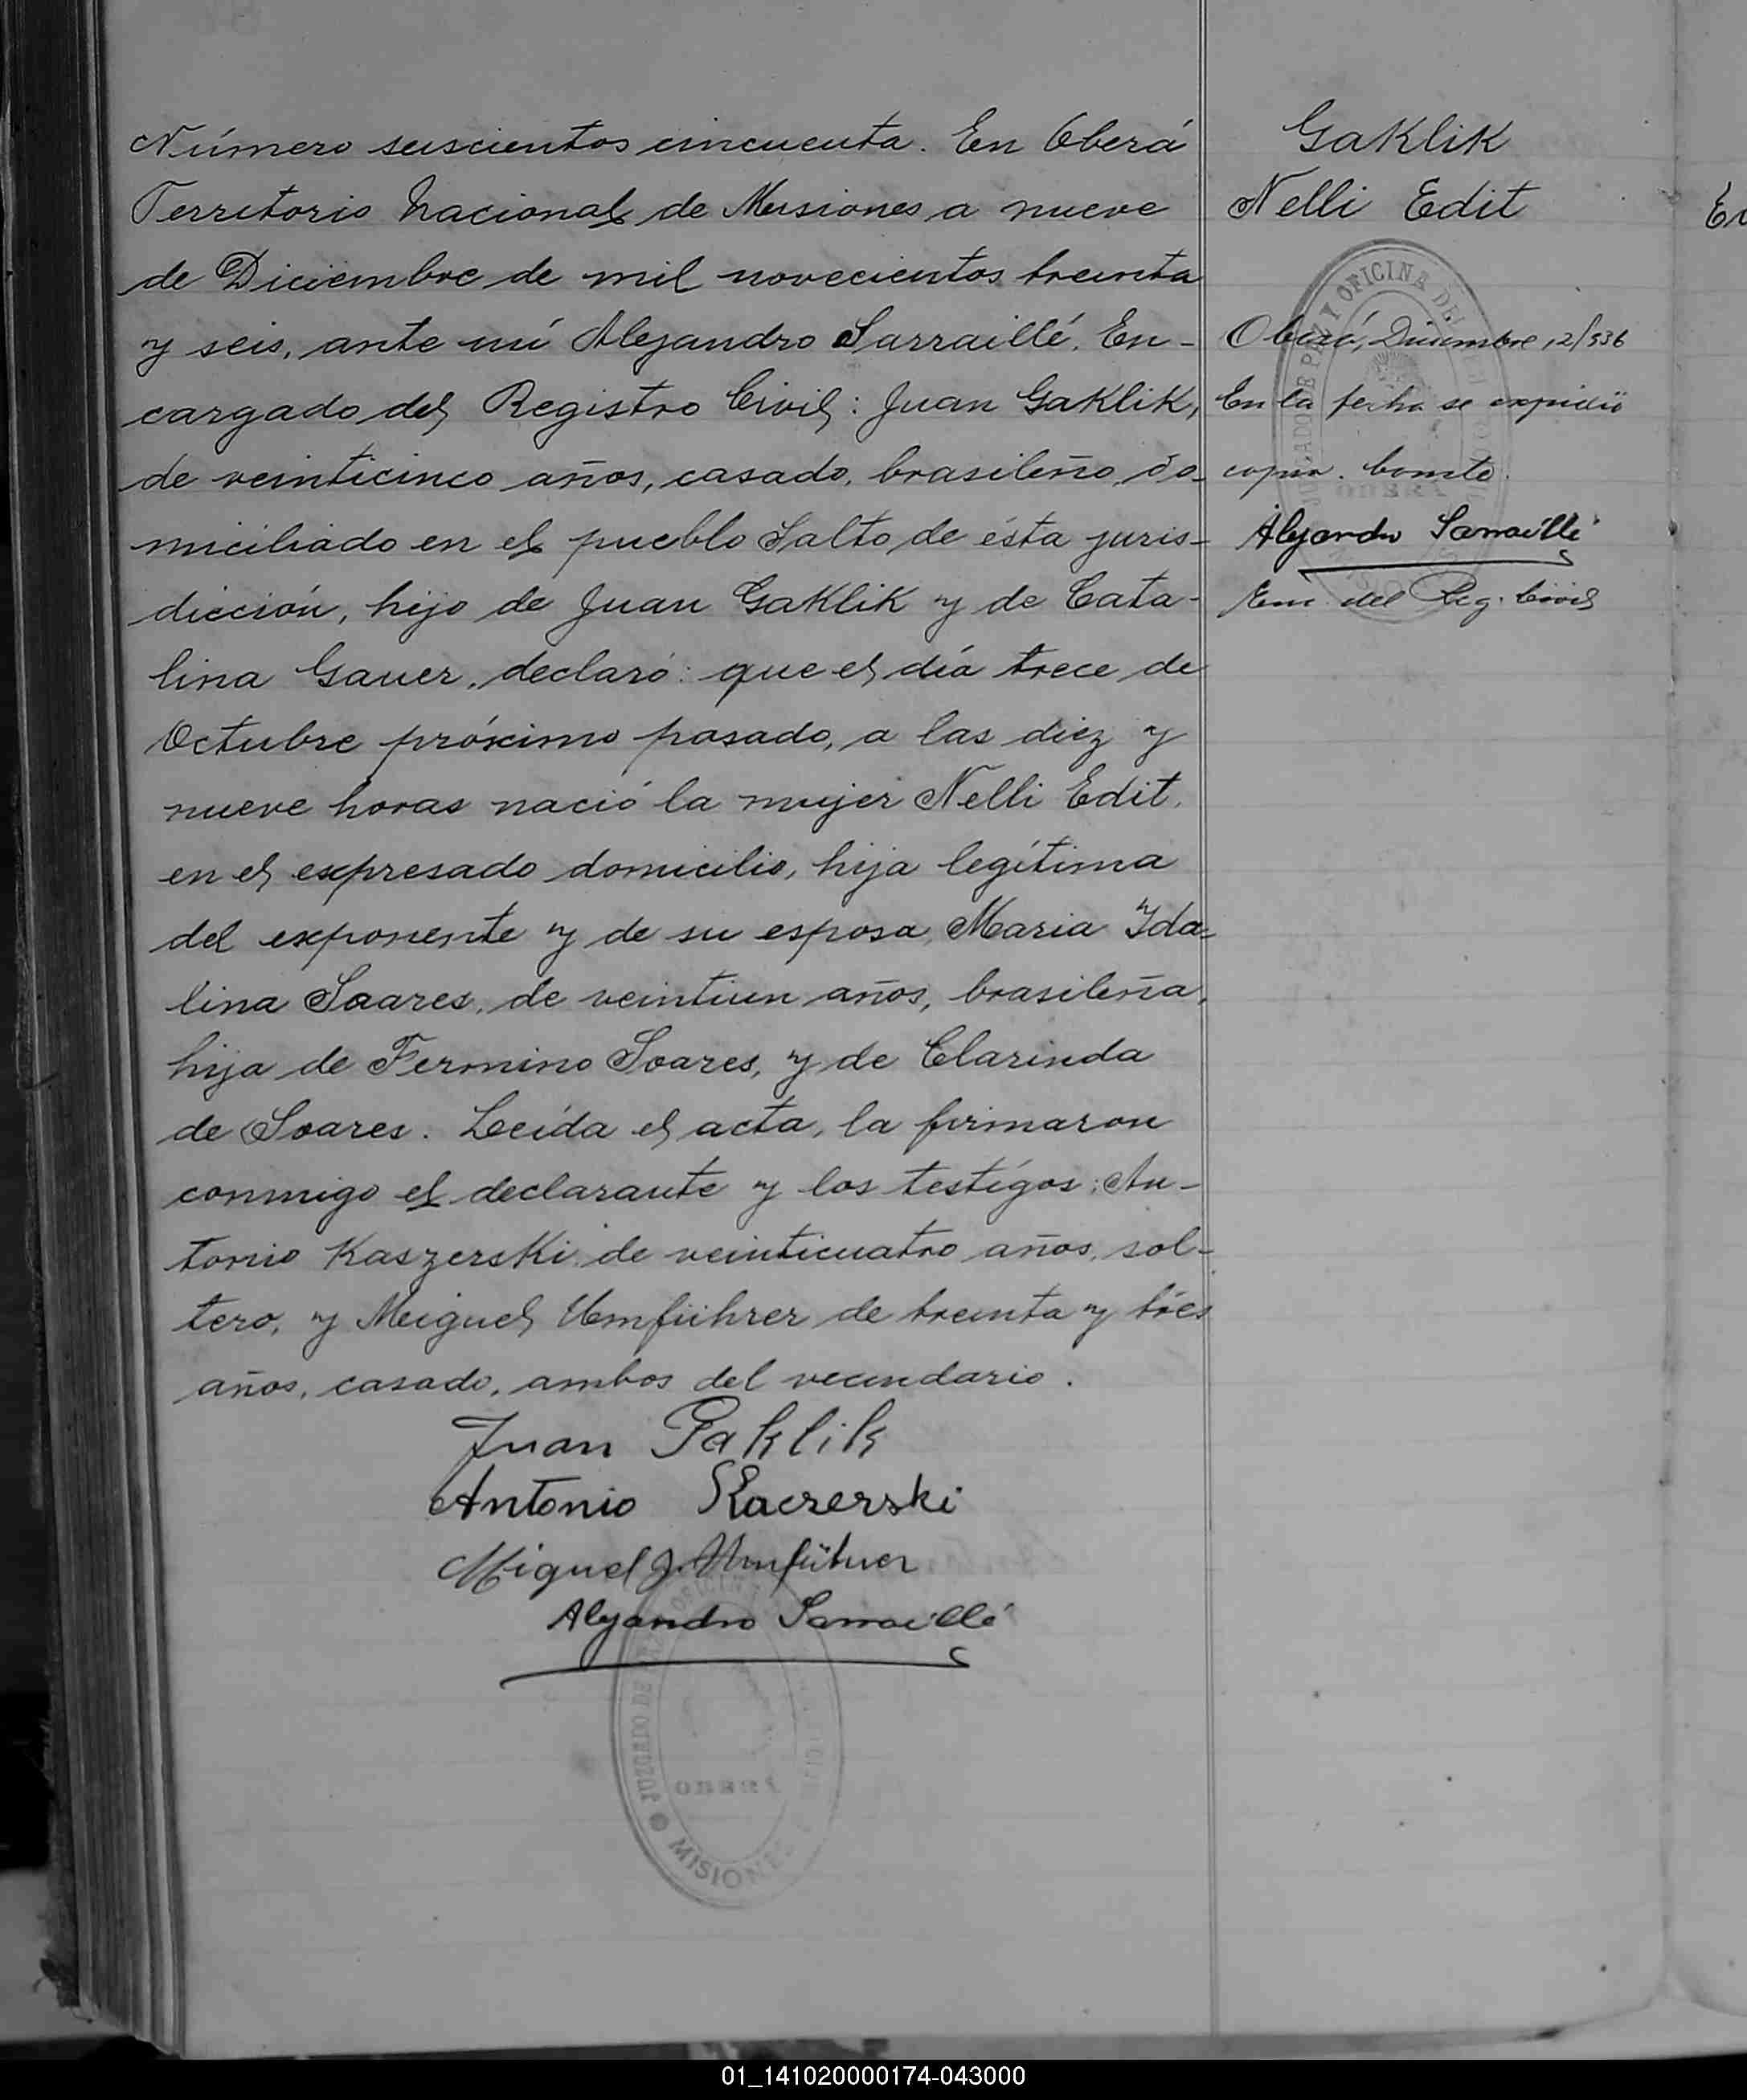 Número seiscientos cincuenta. En Oberá
Territorio Nacional de Misiones a nueve
de Diciembre de mil novecientos treinta
y seis, ante mí Alejandro Sarraillé, En-
cargado del Registro Civil: Juan Gaklik,
de veinticinco años, casado, brasileño, do-
miciliado en el pueblo Salto de ésta juris-
dicción, hijo de Juan Gaklik y de Cata-
lina Gauer, declaró: que el día trece de
Octubre próximo pasado, a las diez y
nueve horas nació la mujer Nelli Edit,
en el expresado domicilio, hija legítima
del exponente y de su esposa, Maria Yda-
lina Saares, de veintiun años, brasileña,
hija de Fermino Soares, y de Clarinda
de Soares. Leída el acta, la firmaron
conmigo el declarante y los testigos: An-
tonio Kaszerski de veinticuatro años, sol-
tero, y Miguel Umführer de treinta y trés
años, casado, ambos del vecindario.
Juan Gaklik
Antonio Kaczerski
Miguel J. Umführer
Alejandro Sarraillé
JUZGADO DE
OFICINA
OBERÁ
MISIONES
Gaklik
Nelli Edit
Oberá, Diciembre, 2/936
En la fecha se expidió
copia. Conste.
Alejandro Sarraillé
Enc. del Reg. Civil
JUZGADO DE PAZ Y OFICINA DEL
OBERÁ
En
01_141020000174-043000